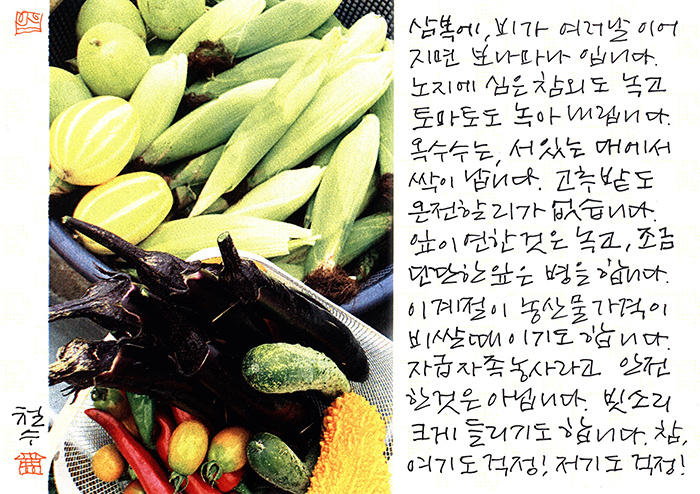 삼복에, 비가 여러날 이어
지면 보나마나 입니다.
노지에 심은 참외도 녹고
토마토도 녹아 내립니다.
옥수수는, 서있는 대에서
싹이 납니다. 고추밭도
온전할리가 없습니다.
잎이 연한 것은 녹고, 조금
단단한 잎은 병을 합니다.
이계절이 농산물가격이
비쌀때이기도 합니다.
자급자족농사라고 안전
한것은 아닙니다. 빗소리
크게 들리기도 합니다. 참,
여기도 걱정! 저기도 걱정!
철수